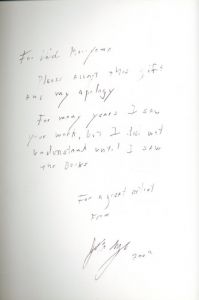 For
Please accept this gift
and my apology
For many years I saw
your work, but I did not
understand until I saw
the Books
For a great
From